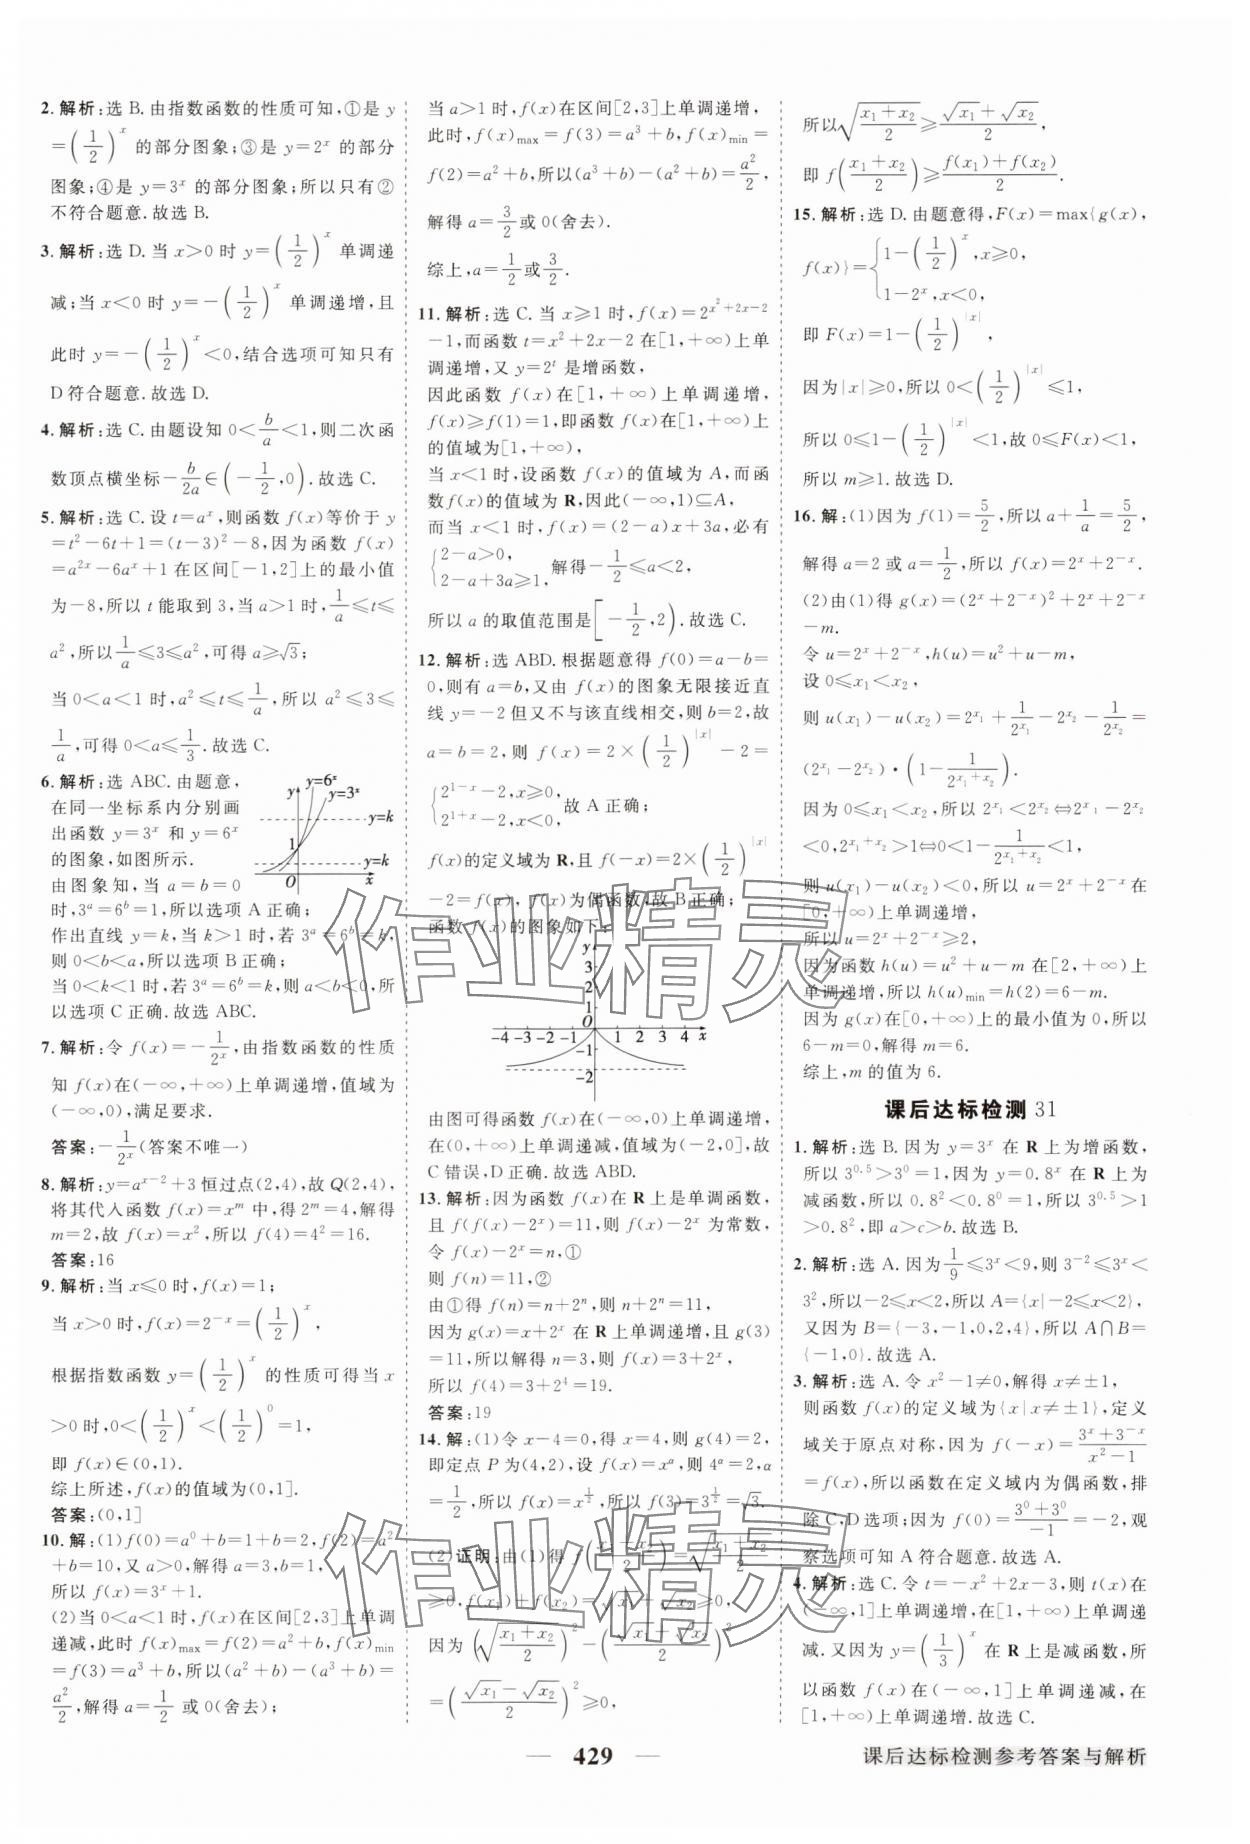 2. 解析:选 B. 由指数函数的性质可知,①是 y
=(1/2)^x 的部分图象;③是 y=2^x 的部分
图象;④是 y=3^x 的部分图象;所以只有②
不符合题意.故选 B.
3. 解析:选 D. 当 x>0 时 y=(1/2)^x 单调递
减;当 x<0 时 y=-(1/2)^x 单调递增,且
此时 y=-(1/2)^x<0,结合选项可知只有
D 符合题意.故选 D.
4. 解析:选 C. 由题设知 0<b/a<1,则二次函
数顶点横坐标-b/2a∈(-1/2,0).故选 C.
5. 解析:选 C. 设 t=a^x,则函数 f(x)等价于 y
=t²-6t+1=(t-3)²-8,因为函数 f(x)
=a^{2x}-6a^x+1 在区间[-1,2]上的最小值
为-8,所以 t 能取到 3,当 a>1 时,1/a≤t≤
a²,所以1/a≤3≤a²,可得 a≥√3;
当 0<a<1 时,a²≤t≤1/a,所以 a²≤3≤
1/a,可得 0<a≤1/3.故选 C.
6. 解析:选 ABC. 由题意,
在同一坐标系内分别画
出函数 y=3^x 和 y=6^x
的图象,如图所示.
由图象知,当 a=b=0
y y=6^x
y=3^x
y=k
1
y=k
O x
时,3^a=6^b=1,所以选项 A 正确;
作出直线 y=k,当 k>1 时,若 3^a=6^b=k,
则 0<b<a,所以选项 B 正确;
当 0<k<1 时,若 3^a=6^b=k,则 a<b<0,所
以选项 C 正确.故选 ABC.
7. 解析:令 f(x)=-1/2^x,由指数函数的性质
知 f(x)在(-∞,+∞)上单调递增,值域为
(-∞,0),满足要求.
答案:-1/2^x(答案不唯一)
8. 解析:y=a^{x-2}+3 恒过点(2,4),故 Q(2,4),
将其代入函数 f(x)=x^m 中,得 2^m=4,解得
m=2,故 f(x)=x²,所以 f(4)=4²=16.
答案:16
9. 解析:当 x≤0 时,f(x)=1;
当 x>0 时,f(x)=2^{-x}=(1/2)^x,
根据指数函数 y=(1/2)^x 的性质可得当 x
>0 时,0<(1/2)^x<(1/2)^0=1,
即 f(x)∈(0,1).
综上所述,f(x)的值域为(0,1].
答案:(0,1]
10. 解:(1)f(0)=a^0+b=1+b=2,f(2)=a²
+b=10,又 a>0,解得 a=3,b=1,
所以 f(x)=3^x+1.
(2)当 0<a<1 时,f(x)在区间[2,3]上单调
递减,此时 f(x)max=f(2)=a²+b,f(x)min
=f(3)=a³+b,所以(a²+b)-(a³+b)=
a²/2,解得 a=1/2 或 0(舍去);
当 a>1 时,f(x)在区间[2,3]上单调递增,
此时,f(x)max=f(3)=a³+b,f(x)min=
f(2)=a²+b,所以(a³+b)-(a²+b)=a²/2,
解得 a=3/2或 0(舍去).
综上,a=1/2或3/2.
11. 解析:选 C. 当 x≥1 时,f(x)=2^{x²+2x-2}
-1,而函数 t=x²+2x-2 在[1,+∞)上单
调递增,又 y=2^t 是增函数,
因此函数 f(x)在[1,+∞)上单调递增,
f(x)≥f(1)=1,即函数 f(x)在[1,+∞)上
的值域为[1,+∞),
当 x<1 时,设函数 f(x)的值域为 A,而函
数 f(x)的值域为 R,因此(-∞,1)⊆A,
而当 x<1 时,f(x)=(2-a)x+3a,必有
{2-a>0,
2-a+3a≥1, 解得-1/2≤a<2,
所以 a 的取值范围是[-1/2,2).故选 C.
12. 解析:选 ABD. 根据题意得 f(0)=a-b=
0,则有 a=b,又由 f(x)的图象无限接近直
线 y=-2 但又不与该直线相交,则 b=2,故
a=b=2,则 f(x)=2×(1/2)^{|x|}-2=
{2^{1-x}-2,x≥0,
2^{1+x}-2,x<0, 故 A 正确;
f(x)的定义域为 R,且 f(-x)=2×(1/2)^{|x|}
-2=f(x),f(x)为偶函数,故 B 正确;
函数 f(x)的图象如下:
y
3
2
1
O
-4 -3 -2 -1 1 2 3 4 x
-1
-2
由图可得函数 f(x)在(-∞,0)上单调递增,
在(0,+∞)上单调递减,值域为(-2,0],故
C 错误,D 正确.故选 ABD.
13. 解析:因为函数 f(x)在 R 上是单调函数,
且 f(f(x)-2^x)=11,则 f(x)-2^x 为常数,
令 f(x)-2^x=n,①
则 f(n)=11,②
由①得 f(n)=n+2^n,则 n+2^n=11,
因为 g(x)=x+2^x 在 R 上单调递增,且 g(3)
=11,所以解得 n=3,则 f(x)=3+2^x,
所以 f(4)=3+2⁴=19.
答案:19
14. 解:(1)令 x-4=0,得 x=4,则 g(4)=2,
即定点 P 为(4,2),设 f(x)=x^α,则 4^α=2,α
=1/2,所以 f(x)=x^{1/2},所以 f(3)=3^{1/2}=√3.
(2)证明:由(1)得 f((x₁+x₂)/2)=√((x₁+x₂)/2)
≥0,f(x₁)+f(x₂)=√x₁+√x₂≥0,
因为 (√((x₁+x₂)/2))²-((√x₁+√x₂)/2)²
=((√x₁-√x₂)/2)²≥0,
所以√((x₁+x₂)/2)≥(√x₁+√x₂)/2,
即 f((x₁+x₂)/2)≥(f(x₁)+f(x₂))/2.
15. 解析:选 D. 由题意得,F(x)=max{g(x),
f(x)}={1-(1/2)^x,x≥0,
1-2^x,x<0,
即 F(x)=1-(1/2)^{|x|},
因为|x|≥0,所以 0<(1/2)^{|x|}≤1,
所以 0≤1-(1/2)^{|x|}<1,故 0≤F(x)<1,
所以 m≥1.故选 D.
16. 解:(1)因为 f(1)=5/2,所以 a+1/a=5/2,
解得 a=2 或 a=1/2,所以 f(x)=2^x+2^{-x}.
(2)由(1)得 g(x)=(2^x+2^{-x})²+2^x+2^{-x}
-m.
令 u=2^x+2^{-x},h(u)=u²+u-m,
设 0≤x₁<x₂,
则 u(x₁)-u(x₂)=2^{x₁}+1/2^{x₁}-2^{x₂}-1/2^{x₂}=
(2^{x₁}-2^{x₂})·(1-1/2^{x₁+x₂}).
因为 0≤x₁<x₂,所以 2^{x₁}<2^{x₂}⇔2^{x₁}-2^{x₂}
<0,2^{x₁+x₂}>1⇔0<1-1/2^{x₁+x₂}<1,
则 u(x₁)-u(x₂)<0,所以 u=2^x+2^{-x}在
[0,+∞)上单调递增,
所以 u=2^x+2^{-x}≥2,
因为函数 h(u)=u²+u-m 在[2,+∞)上
单调递增,所以 h(u)min=h(2)=6-m.
因为 g(x)在[0,+∞)上的最小值为 0,所以
6-m=0,解得 m=6.
综上,m 的值为 6.
课后达标检测 31
1. 解析:选 B. 因为 y=3^x 在 R 上为增函数,
所以 3^{0.5}>3^0=1,因为 y=0.8^x 在 R 上为
减函数,所以 0.8²<0.8^0=1,所以 3^{0.5}>1
>0.8²,即 a>c>b.故选 B.
2. 解析:选 A. 因为1/9≤3^x<9,则 3^{-2}≤3^x<
3²,所以-2≤x<2,所以 A={x|-2≤x<2},
又因为 B={-3,-1,0,2,4},所以 A∩B=
{-1,0}.故选 A.
3. 解析:选 A. 令 x²-1≠0,解得 x≠±1,
则函数 f(x)的定义域为{x|x≠±1},定义
域关于原点对称,因为 f(-x)=(3^x+3^{-x})/(x²-1)
=f(x),所以函数在定义域内为偶函数,排
除 C,D 选项;因为 f(0)=(3^0+3^0)/(-1)=-2,观
察选项可知 A 符合题意.故选 A.
4. 解析:选 C. 令 t=-x²+2x-3,则 t(x)在
(-∞,1]上单调递增,在[1,+∞)上单调递
减.又因为 y=(1/3)^x 在 R 上是减函数,所
以函数 f(x)在(-∞,1]上单调递减,在
[1,+∞)上单调递增.故选 C.
作业精灵
作业精灵
429
课后达标检测参考答案与解析